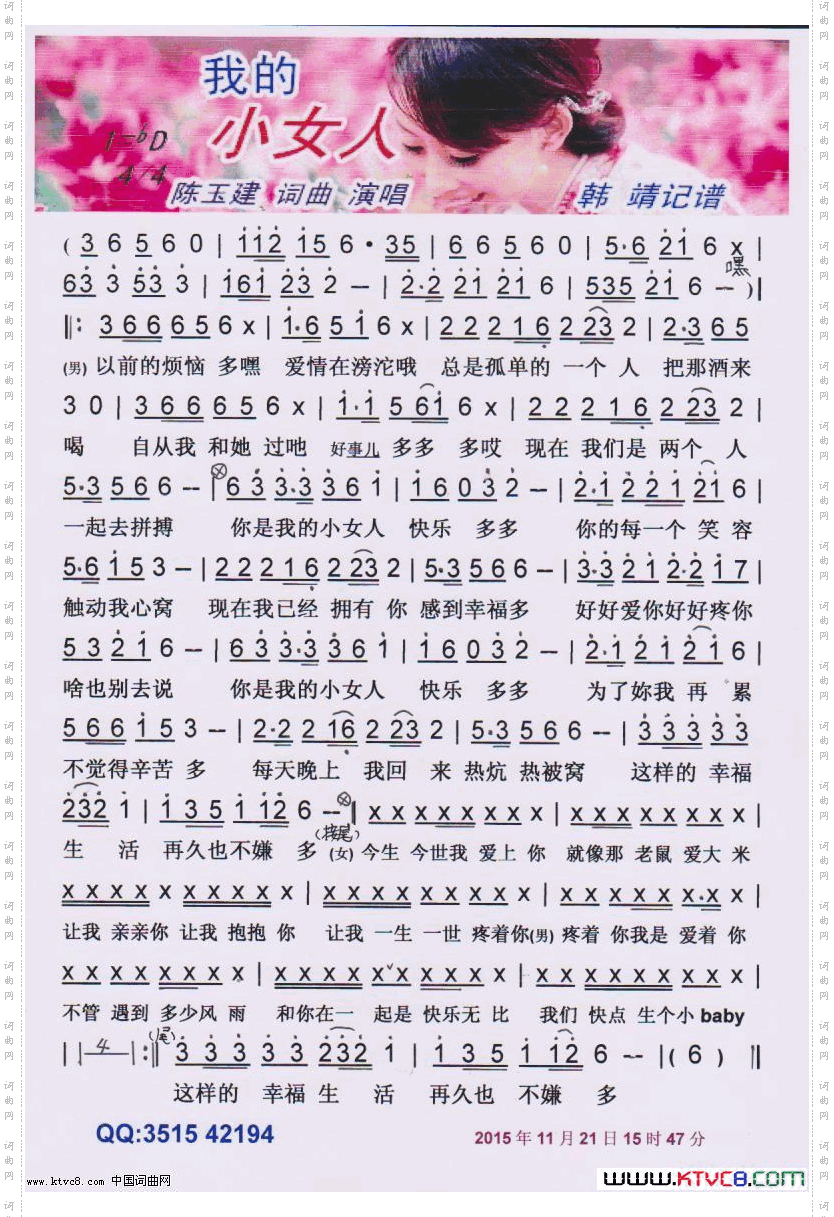 我的
小女人
1=bD
4/4
陈玉建 词曲 演唱 韩 靖记谱
( 3 6 5 6 0 | 1 1 2 1 5 6 · 3 5 | 6 6 5 6 0 | 5·6 2 1 6 x |
嘿
6 3 3 5 3 3 | 1 6 1 2 3 2 – | 2·2 2 1 2 1 6 | 5 3 5 2 1 6 – ) |
‖: 3 6 6 6 5 6 x | 1·6 5 1 6 x | 2 2 2 1 6 2 2 3 2 | 2·3 6 5
(男) 以前的烦恼 多嘿 爱情在滂沱哦 总是孤单的 一个 人 把那酒来
3 0 | 3 6 6 6 5 6 x | 1·1 5 6 1 6 x | 2 2 2 1 6 2 2 3 2 |
喝 自从我 和她 过吔 好事儿 多多 多哎 现在 我们是 两个 人
5·3 5 6 6 – | 6 3 3·3 3 6 1 | 1 6 0 3 2 – | 2·1 2 2 1 2 1 6 |
一起去拼搏 你是我的小女人 快乐 多多 你的每一个 笑 容
5·6 1 5 3 – | 2 2 2 1 6 2 2 3 2 | 5·3 5 6 6 – | 3·3 2 1 2·2 1 7 |
触动我心窝 现在我已经 拥有 你 感到幸福多 好好爱你好好疼你
5 3 2 1 6 – | 6 3 3·3 3 6 1 | 1 6 0 3 2 – | 2·1 2 1 2 1 6 |
啥也别去说 你是我的小女人 快乐 多多 为了妳我 再 累
5 6 6 1 5 3 – | 2·2 2 1 6 2 2 3 2 | 5·3 5 6 6 – | 3 3 3 3 3
不觉得辛苦 多 每天晚上 我回 来 热炕 热被窝 这样的 幸福
2 3 2 1 | 1 3 5 1 1 2 6 – ‖ x x x x x x x x | x x x x x x x x |
(接尾)
生 活 再久也不嫌 多 (女) 今生 今世我 爱上 你 就像那 老鼠 爱大 米
x x x x x x x x x | x x x x x x x x x | x x x x x x·x x |
让我 亲亲你 让我 抱抱 你 让我 一生 一世 疼着你(男) 疼着 你我是 爱着 你
x x x x x x x x | x x x x x x x x x | x x x x x x x x x |
不管 遇到 多少风 雨 和你在一 起是 快乐无 比 我们 快点 生个小 baby
(尾)
| | 4 | :‖ 3 3 3 3 3 2 3 2 1 | 1 3 5 1 1 2 6 – | ( 6 ) ‖
这样的 幸福 生 活 再久也 不嫌 多
QQ:3515 42194
2015 年 11 月 21 日 15 时 47 分
www.ktvc8.com 中国词曲网
www.KTVC8.com
词曲网